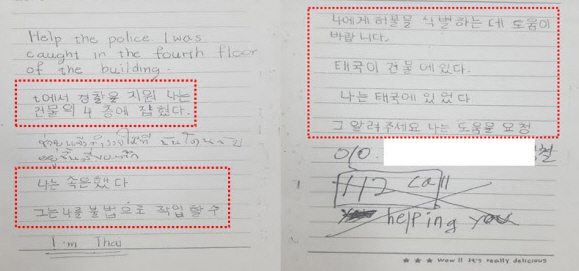 Help the police I was
caught in the fourth floor
of the building.
t에서 경찰을 지원 나는
건물의 4 층에 잡혔다.
나는 속은했 다
그는 나를 불법으로 작업 할 수
I'm Thai
4에게 허물을 식별하는 데 도움이
바랍니다.
태국이 건물에 있다.
나는 태국에 있었다
그 알려주세요 나는 도움을 요청
010.
112 call
helping you
★ ★ ★ Wow!! It's really delicious